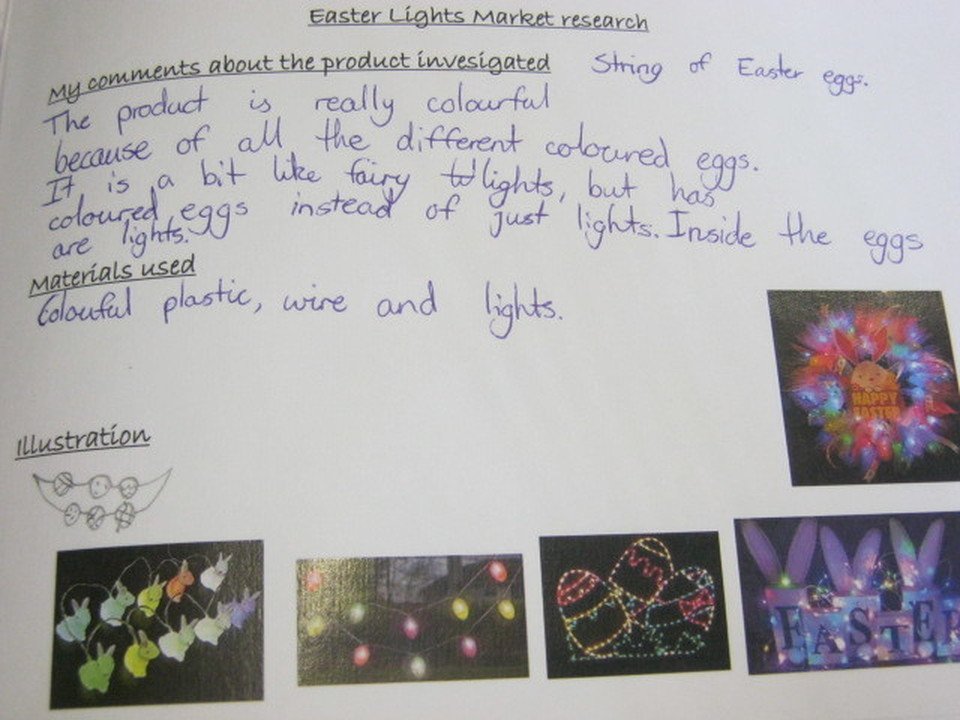 Easter Lights Market research
My comments about the product invesigated String of Easter eggs.
The product is really colourful
because of all the different coloured eggs.
It is a bit like fairy lights, but has
coloured eggs instead of just lights. Inside the eggs
are lights.
Materials used
Colouful plastic, wire and lights.
HAPPY
EASTER
Illustration
EASTER